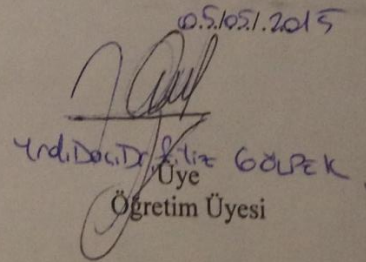 05/05/2015
Yrd.Doç.Dr. Filiz GÖLPEK
Üye
Öğretim Üyesi